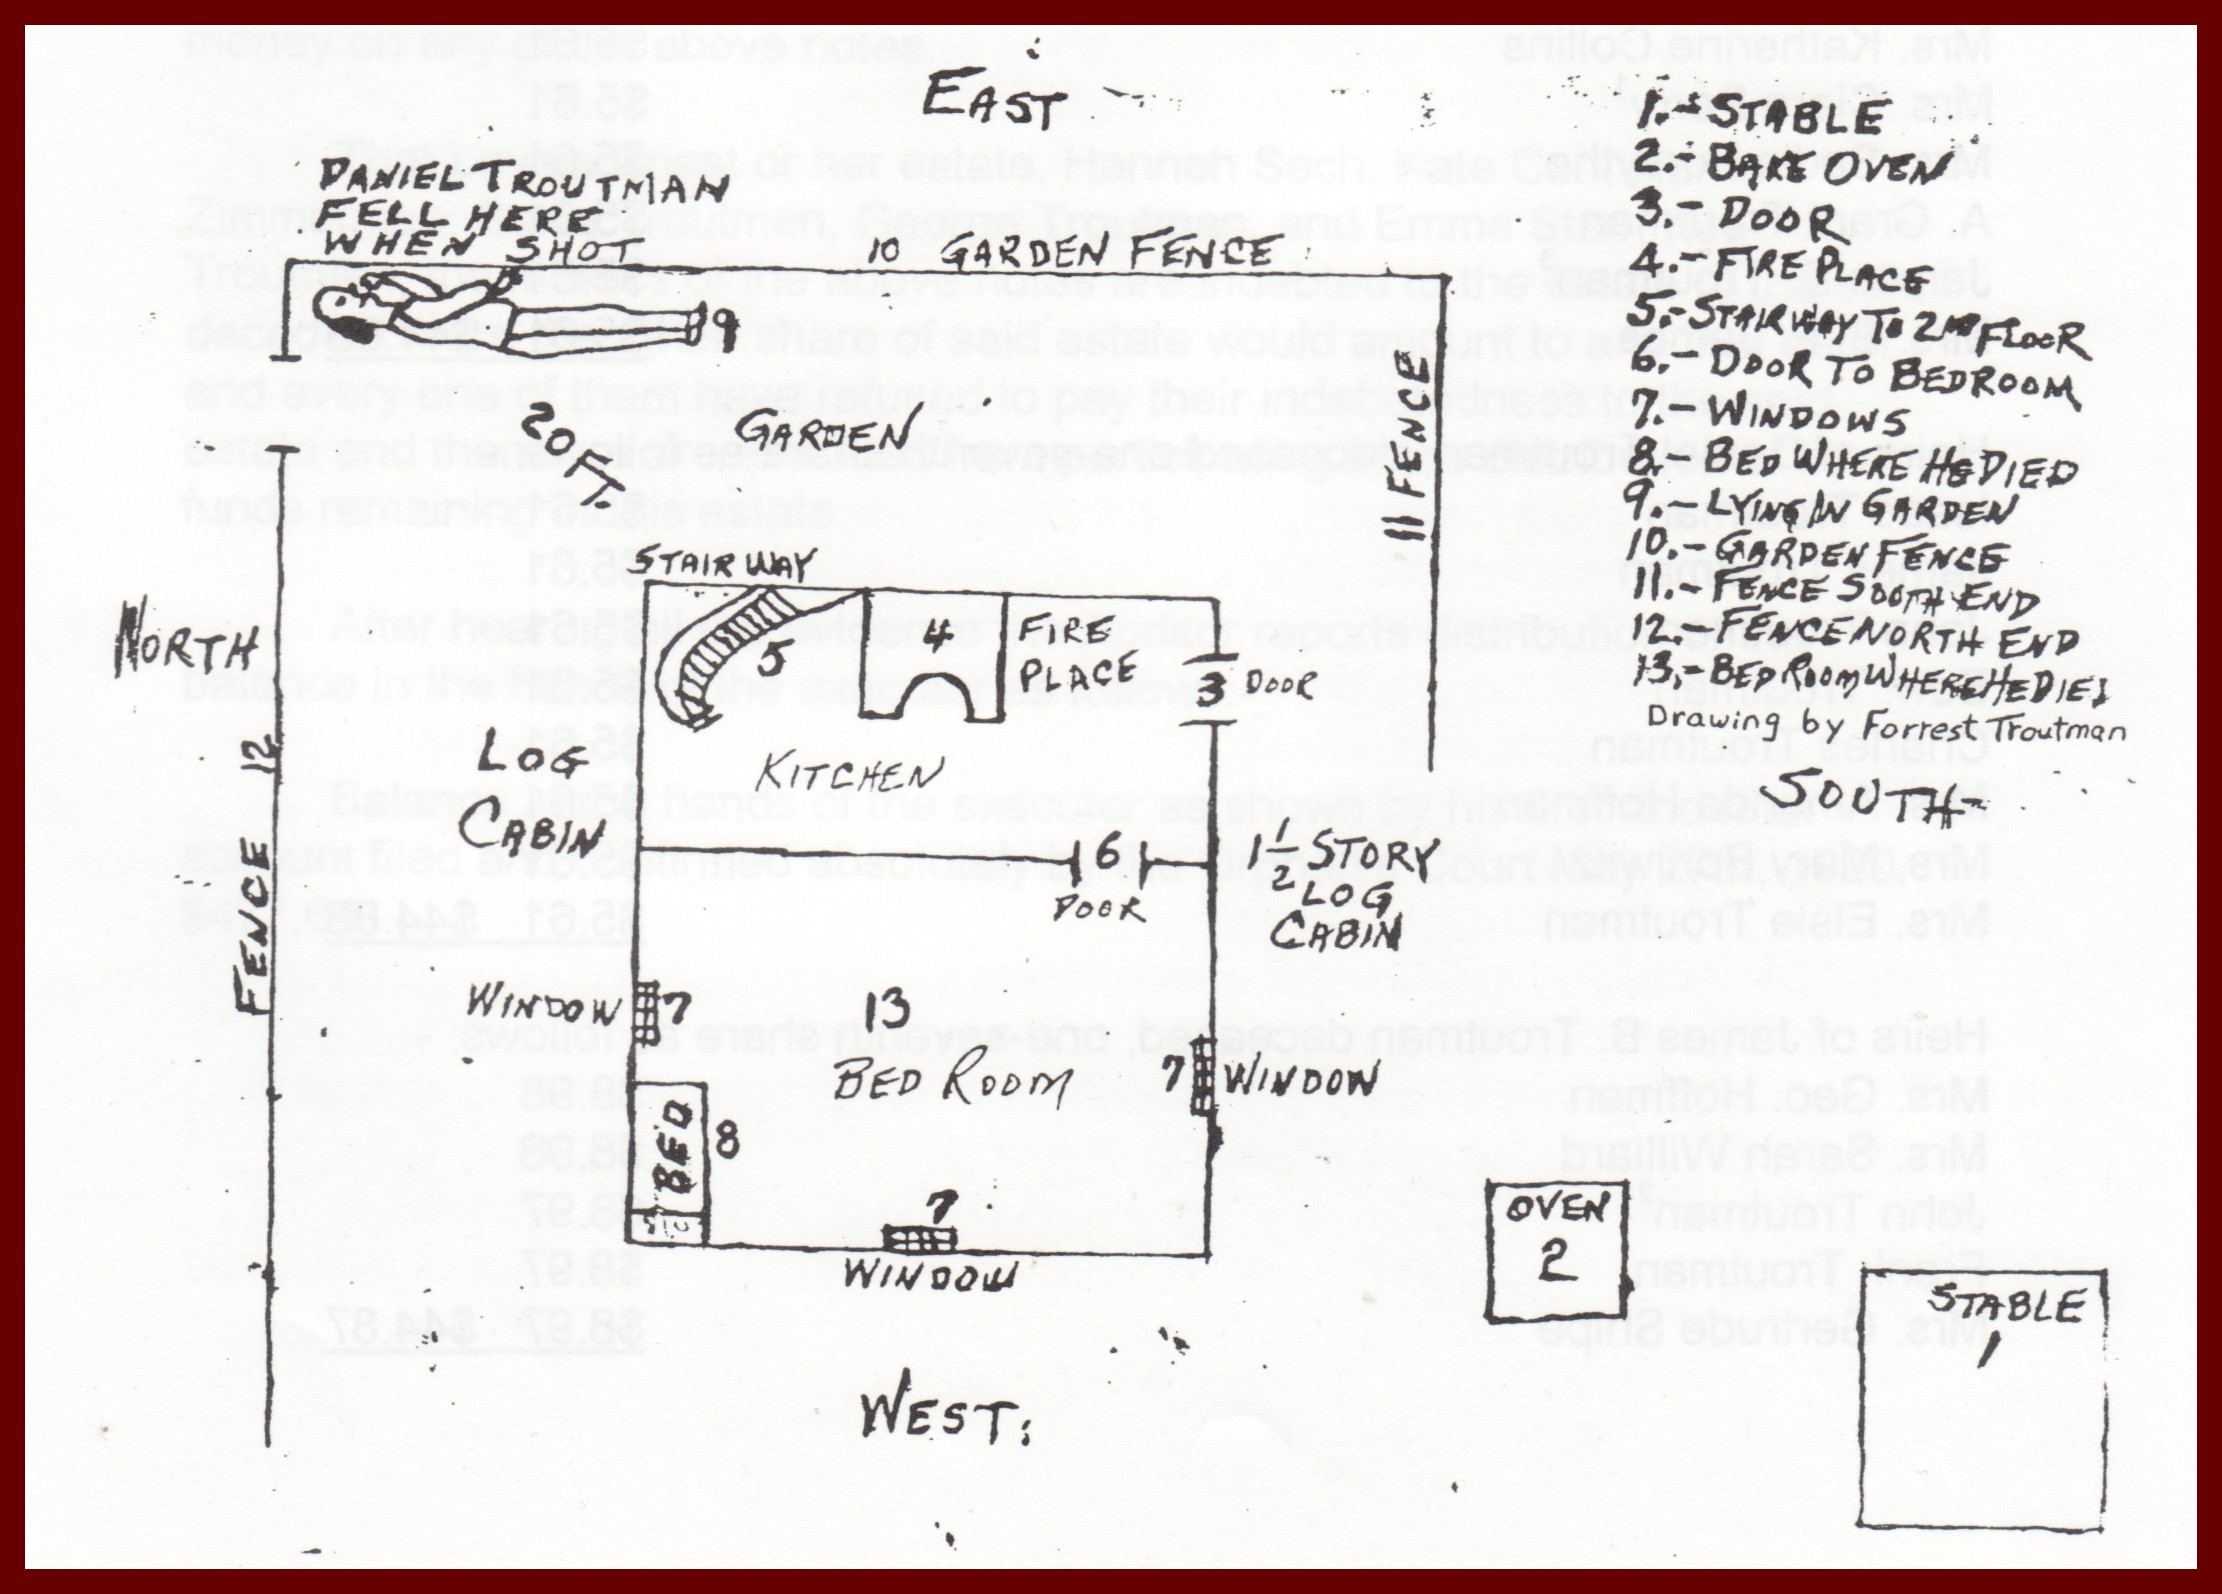 EAST
DANIEL TROUTMAN
FELL HERE
WHEN SHOT
10 GARDEN FENCE
9
20 FT.
GARDEN
11 FENCE
1.- STABLE
2.- BAKE OVEN
3.- DOOR
4.- FIRE PLACE
5.- STAIRWAY TO 2ND FLOOR
6.- DOOR TO BEDROOM
7.- WINDOWS
8.- BED WHERE HE DIED
9.- LYING IN GARDEN
10.- GARDEN FENCE
11.- FENCE SOOTH END
12.- FENCE NORTH END
13.- BED ROOM WHERE HE DIED
Drawing by Forrest Troutman
SOUTH
NORTH
FENCE 12
STAIRWAY
5
4
FIRE
PLACE
3 DOOR
LOG
CABIN
KITCHEN
6
DOOR
1 1/2 STORY
LOG
CABIN
WINDOW 7
13
BED ROOM
7 WINDOW
BED
8
7
WINDOW
OVEN
2
STABLE
1
WEST: